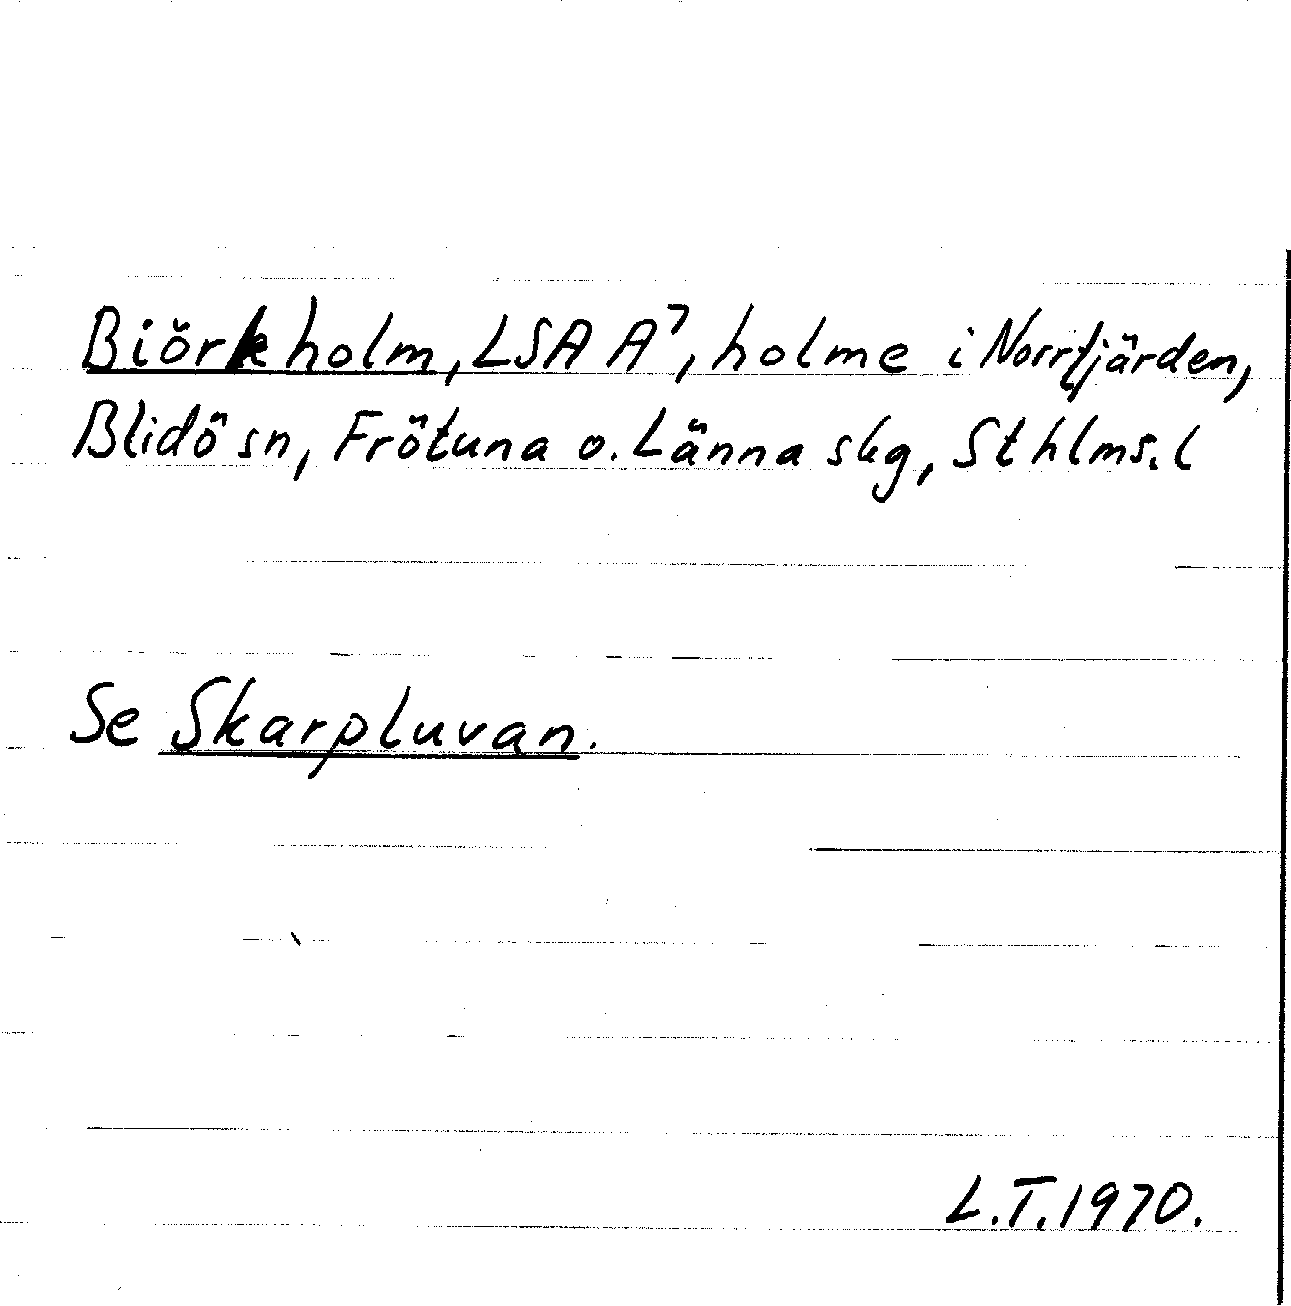 Biörkholm, LSA A⁷, holme i Norrfjärden,
Blidö sn, Frötuna o. Länna skg, Sthlms. l
Se Skarpluvan.
L.T. 1970.